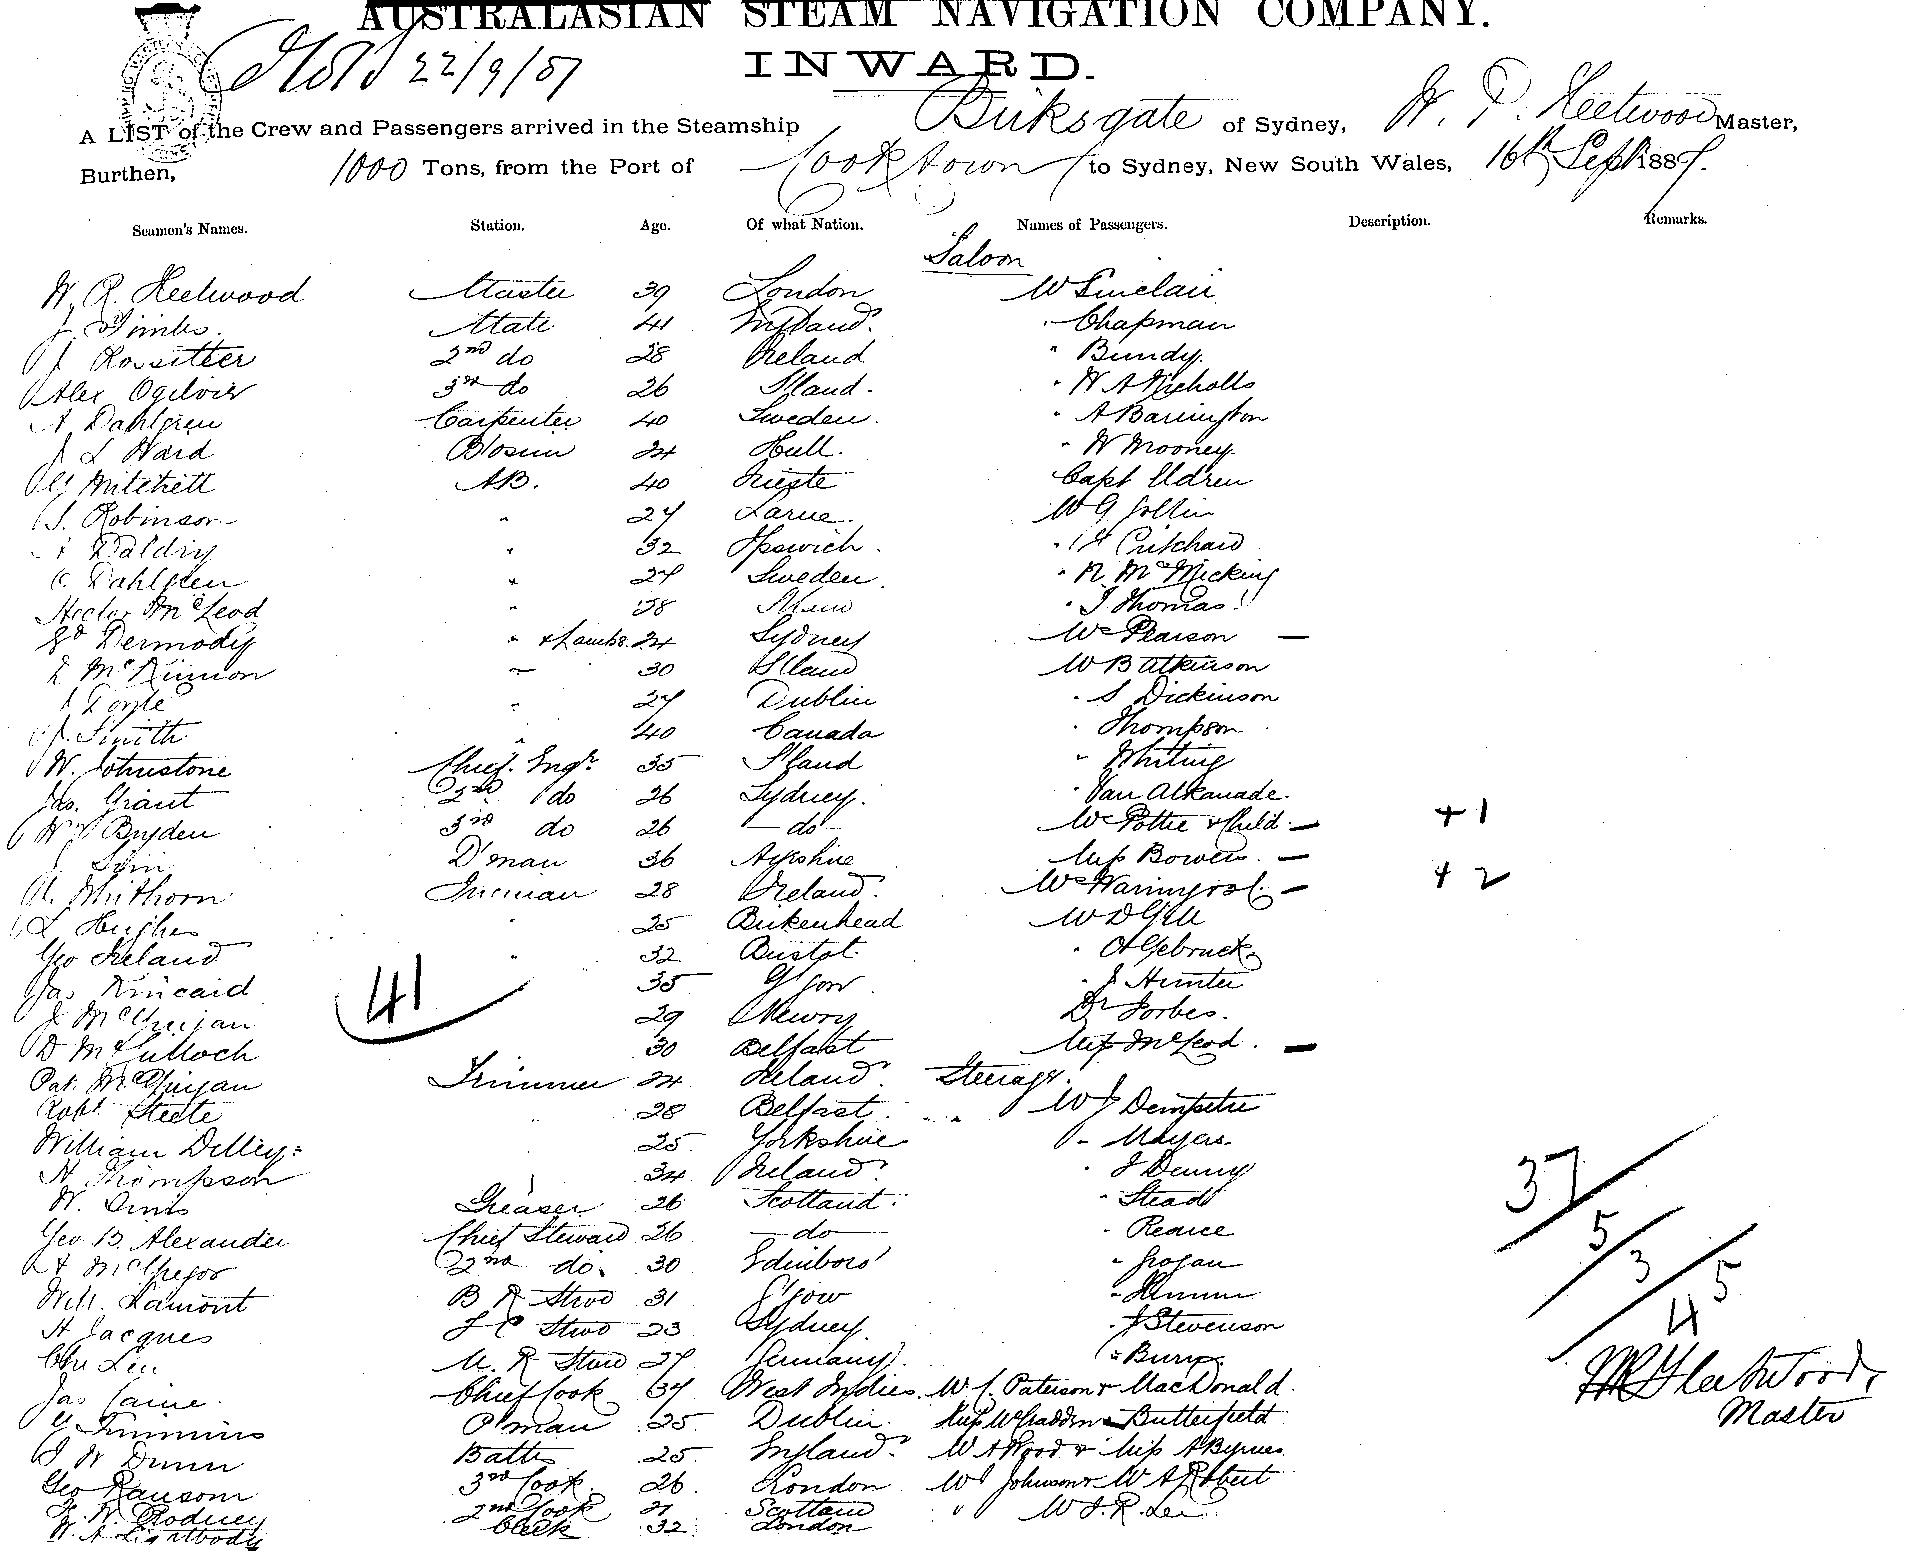 AUSTRALASIAN STEAM NAVIGATION COMPANY.
INWARD.
22/9/87
A LIST of the Crew and Passengers arrived in the Steamship Birksgate of Sydney, W. P. Fleetwood Master,
Burthen, 1000 Tons, from the Port of Cooktown to Sydney, New South Wales, 16th Sept 1887.
Seamen's Names. Station. Age. Of what Nation. Names of Passengers. Description. Remarks.
Saloon
W. R. Fleetwood Master 39 London Mr Sinclair
J. Timbs. Mate 41 England. " Chapman
J Rossiteer 2nd do 28 Ireland " Bundy.
Alex Ogilvie 3rd do 26 S'land. " W A Nicholls
A Dahlgren Carpenter 40 Sweden. " A Barrington
J L Ward Bosun 24 Hull. " W Mooney.
G Mitchell AB. 40 Trieste Capt Eldren
J. Robinson " 27 Larne. Mr G
Baldry " 32 Ipswich. " Pritchard
C. Dahlgren " 27 Sweden. " R. McMicking
Hector McLeod " 38 " J Thomas.
Ed Dermody " & Lamps. 24 Sydney Mrs Pearson —
McKinnon " 30 S'land Mr B Atkinson
" 27 Dublin " S Dickinson
J. Smith " 40 Canada " Thompson
W. Johnstone Chief. Engr. 35 S'land " Whiting
Jas. Grant 2nd do 26 Sydney. " Van Alkanade.
W Bryden 3rd do 26 — do — Mrs Pottie & Child — + 1
J D'man 36 Ayrshire Miss Bowers. —
Fireman 28 Ireland. Mrs — + 2
L Hughes " 25 Birkenhead Mr D Gill
Geo Ireland " 32 Bristol. "
Jas Kincaid 35 G'gow " J Hunter
41
J McGuigan 29 Newry Dr Forbes.
D McCulloch 30 Belfast Miss McLeod. —
Pat. McGuigan Trimmer 24 Ireland. Steerage.
Robt Steele 28 Belfast. Mr J Dempster
William Dilley 25 Yorkshire " Meyers.
H Thompson 34 Ireland. " J Denny
W. Greaser 26 Scotland. " Stead
Geo B. Alexander Chief Steward 26 — do — " Pearce
A McGregor 2nd do. 30 Edinboro' " Grogan
Will. Lamont B R Stwd 31 G'gow "
H Jacques F C Stwd 23 Sydney. " J Stevenson
M. R Stwd 27 Germany. " Burns
Jas Caine. Chief Cook 37 West Indies. Mr C. Paterson & MacDonald.
G Timmins P'man 25 Dublin. Miss McFadden & Butterfield
J W Dunn 25 England. Mr A Wood & Miss A Byrnes
Geo Ransom 3rd Cook. 26. London Mr Johnson & Mr A Robert
F. W. Rodney 2nd Cook 21 Scotland " Mr J. R. Lee
W. A Lightbody Clerk 32 London
37/5/3/5
4
W R Fleetwood,
Master